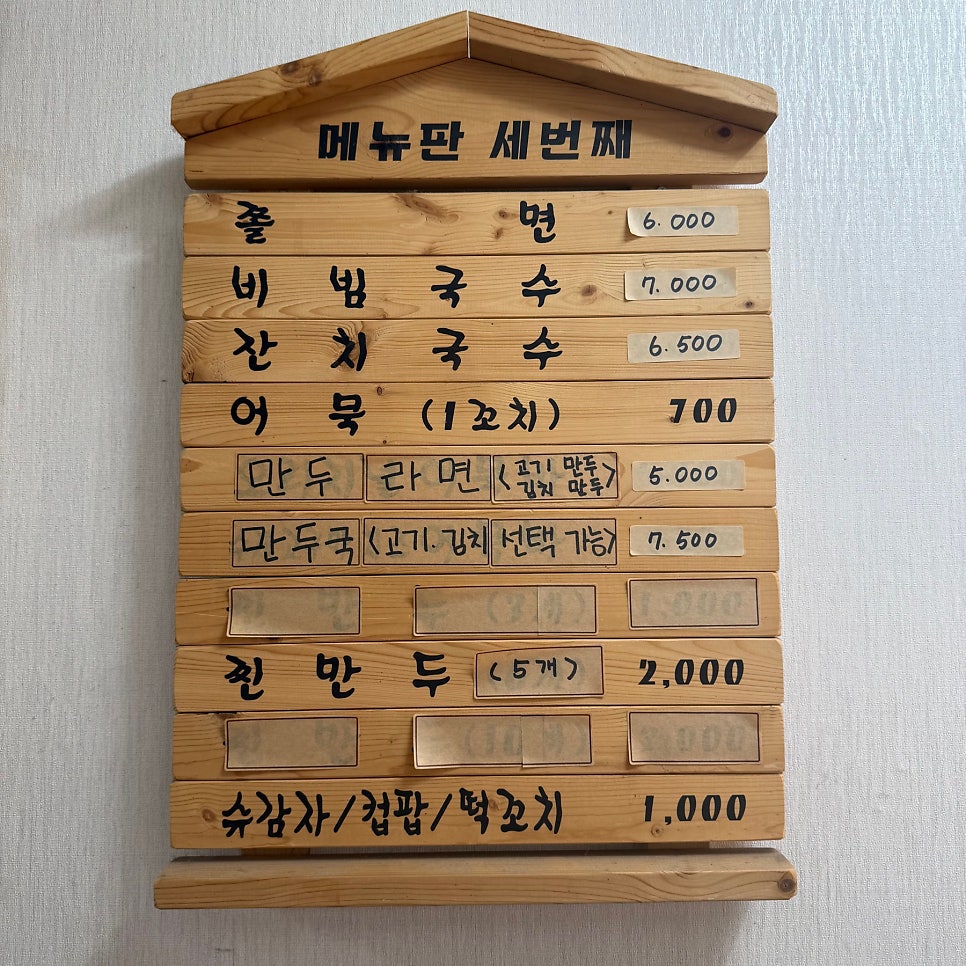 메뉴판 세번째
쫄면 6.000
비빔국수 7.000
잔치국수 6.500
어묵 (1꼬치) 700
만두라면 <고기만두 김치만두> 5.000
만두국 <고기.김치 선택 가능> 7.500
찐만두 (5개) 2,000
슈감자/컵팝/떡꼬치 1,000